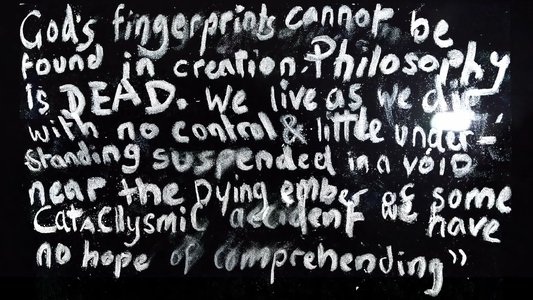 God's fingerprints cannot be
found in creation. Philosophy
is DEAD. We live as we die
with no control & little under-
standing suspended in a void
near the Dying ember of some
CatAclysmic accident we have
no hope of comprehending"